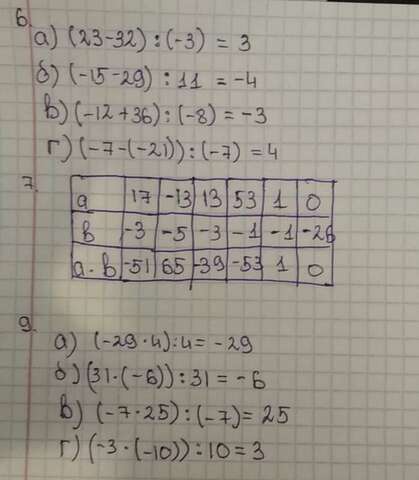 6.
а) (23-32) : (-3) = 3
б) (-15-29) : 11 = -4
в) (-12+36) : (-8) = -3
г) (-7-(-21)) : (-7) = 4
7.
a 17 -13 13 53 1 0
в -3 -5 -3 -1 -1 -26
a·в -51 65 -39 -53 1 0
9.
а) (-29·4):4 = -29
б) (31·(-6)) : 31 = -6
в) (-7·25) : (-7) = 25
г) (-3·(-10)) : 10 = 3